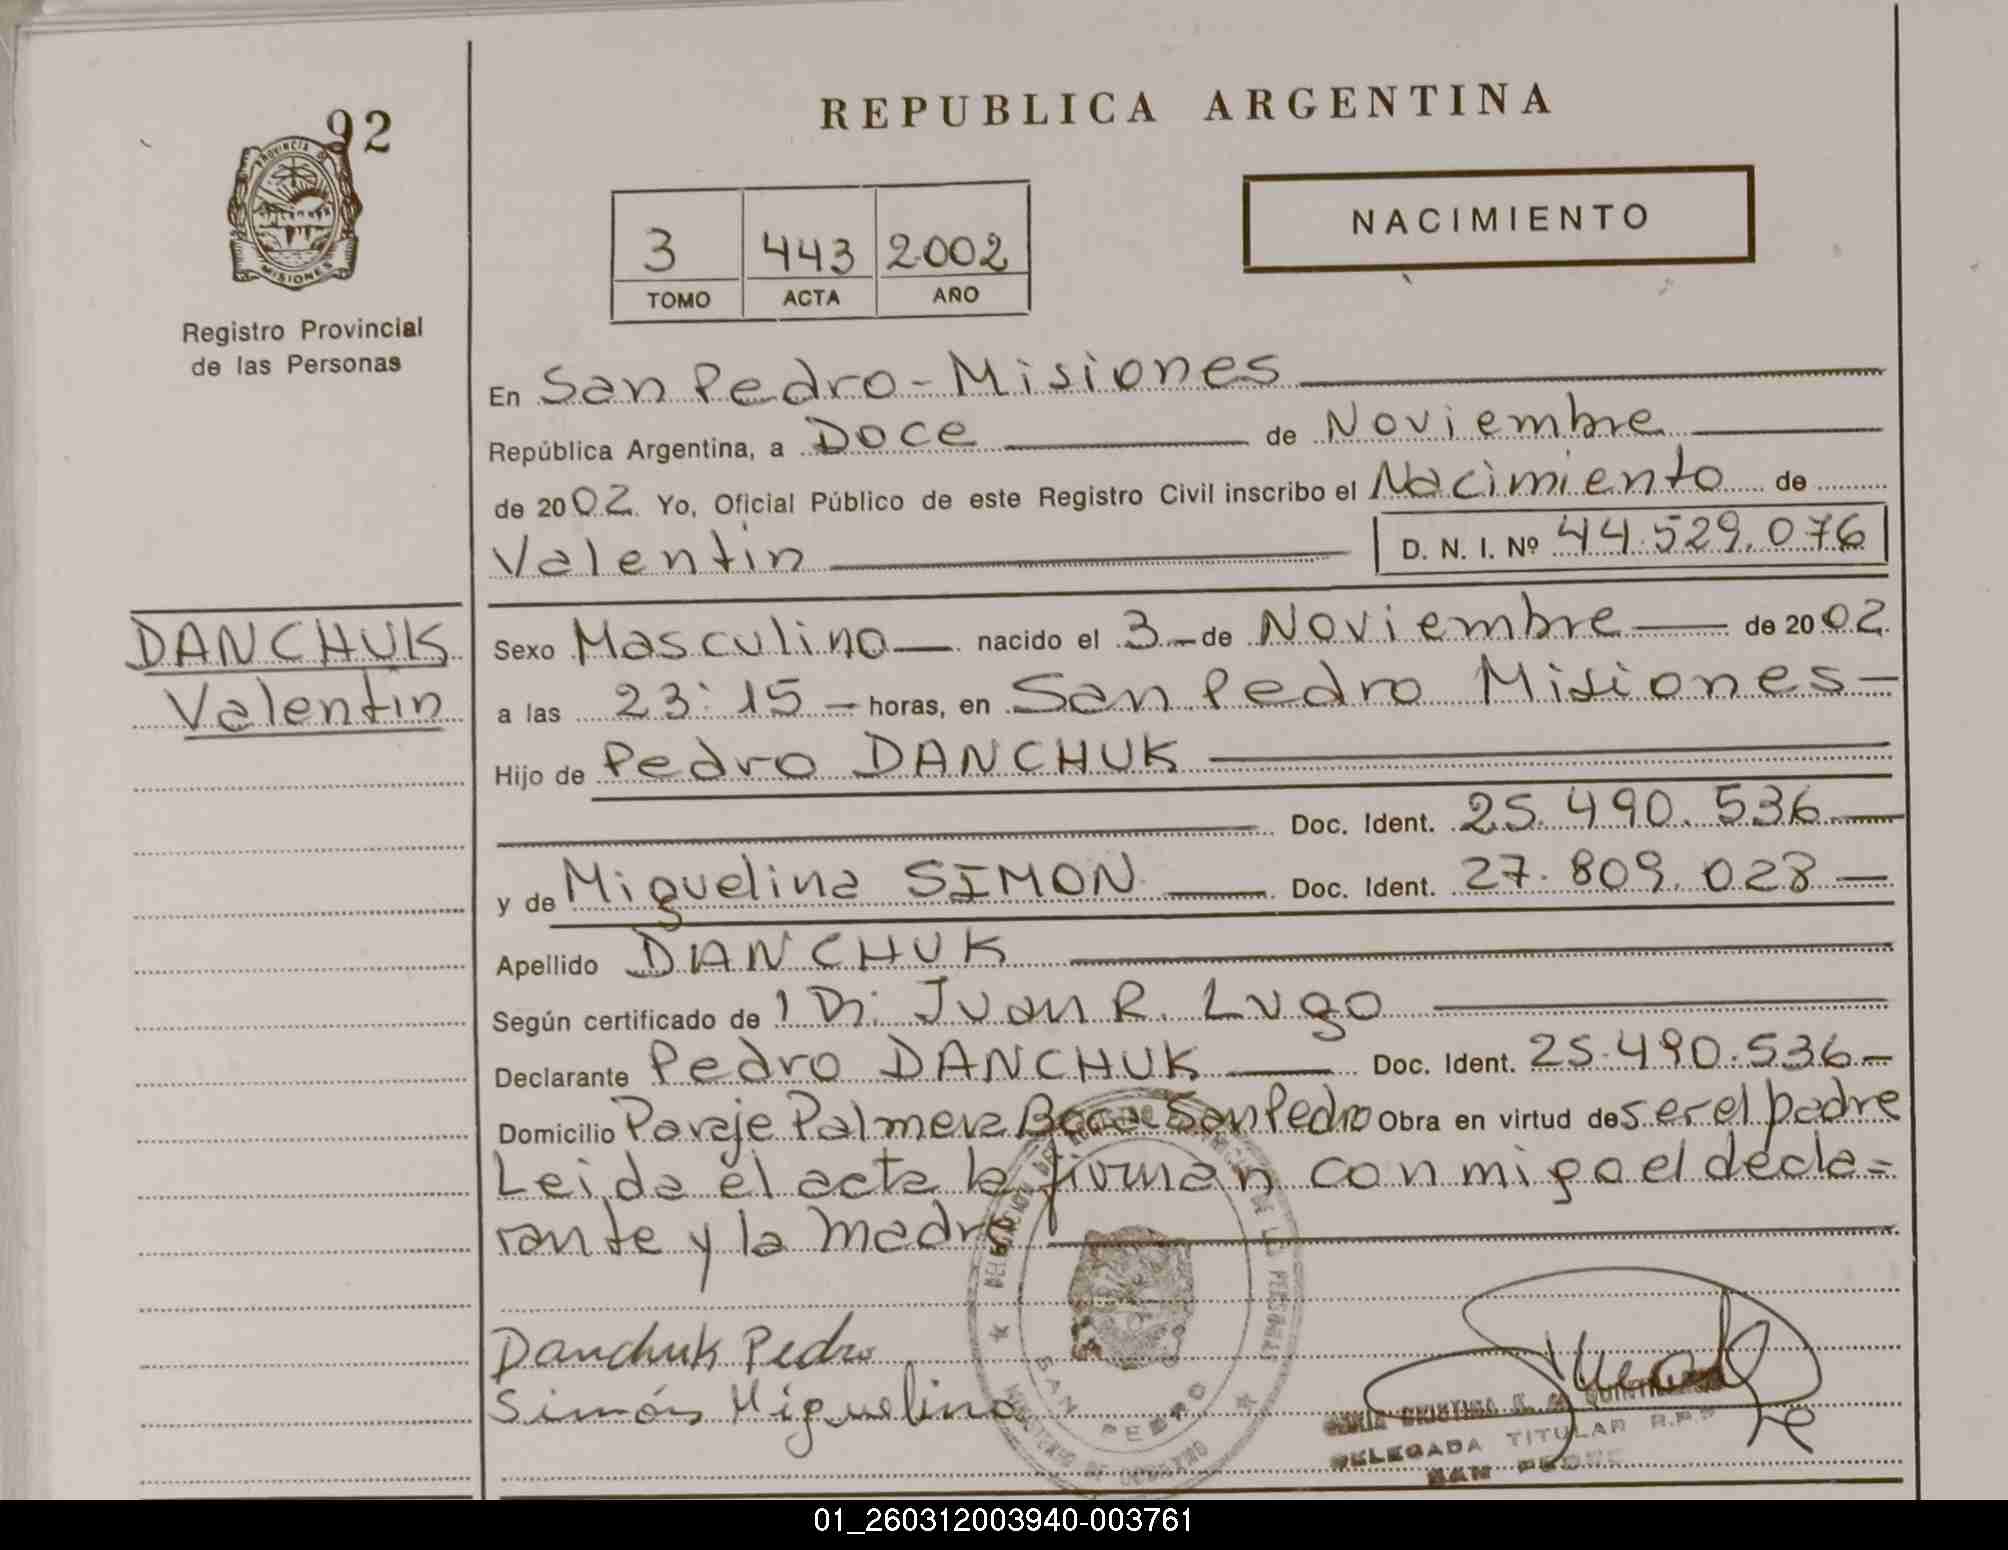 REPUBLICA ARGENTINA
92
PROVINCIA DE
MISIONES
Registro Provincial
de las Personas
NACIMIENTO
3 443 2002
TOMO ACTA AÑO
En San Pedro - Misiones
República Argentina, a Doce de Noviembre
de 2002 Yo, Oficial Público de este Registro Civil inscribo el Nacimiento de
Valentin D. N. I. Nº 44.529.076
DANCHUK
Valentin
Sexo Masculino nacido el 3 de Noviembre de 2002
a las 23:15 horas, en San Pedro Misiones
Hijo de Pedro DANCHUK
Doc. Ident. 25.490.536
y de Miguelina SIMON Doc. Ident. 27.809.028
Apellido DANCHUK
Según certificado de Juan R. Lugo
Declarante Pedro DANCHUK Doc. Ident. 25.490.536
Domicilio Paraje Palmera Boca San Pedro Obra en virtud de ser el padre
Leida el acta la firman conmigo el decla=
rante y la madre
Danchuk Pedro
Simón Miguelina
SAN PEDRO
MINISTERIO DE GOBIERNO
DELEGADA TITULAR R.P.P
SAN PEDRO
01_260312003940-003761